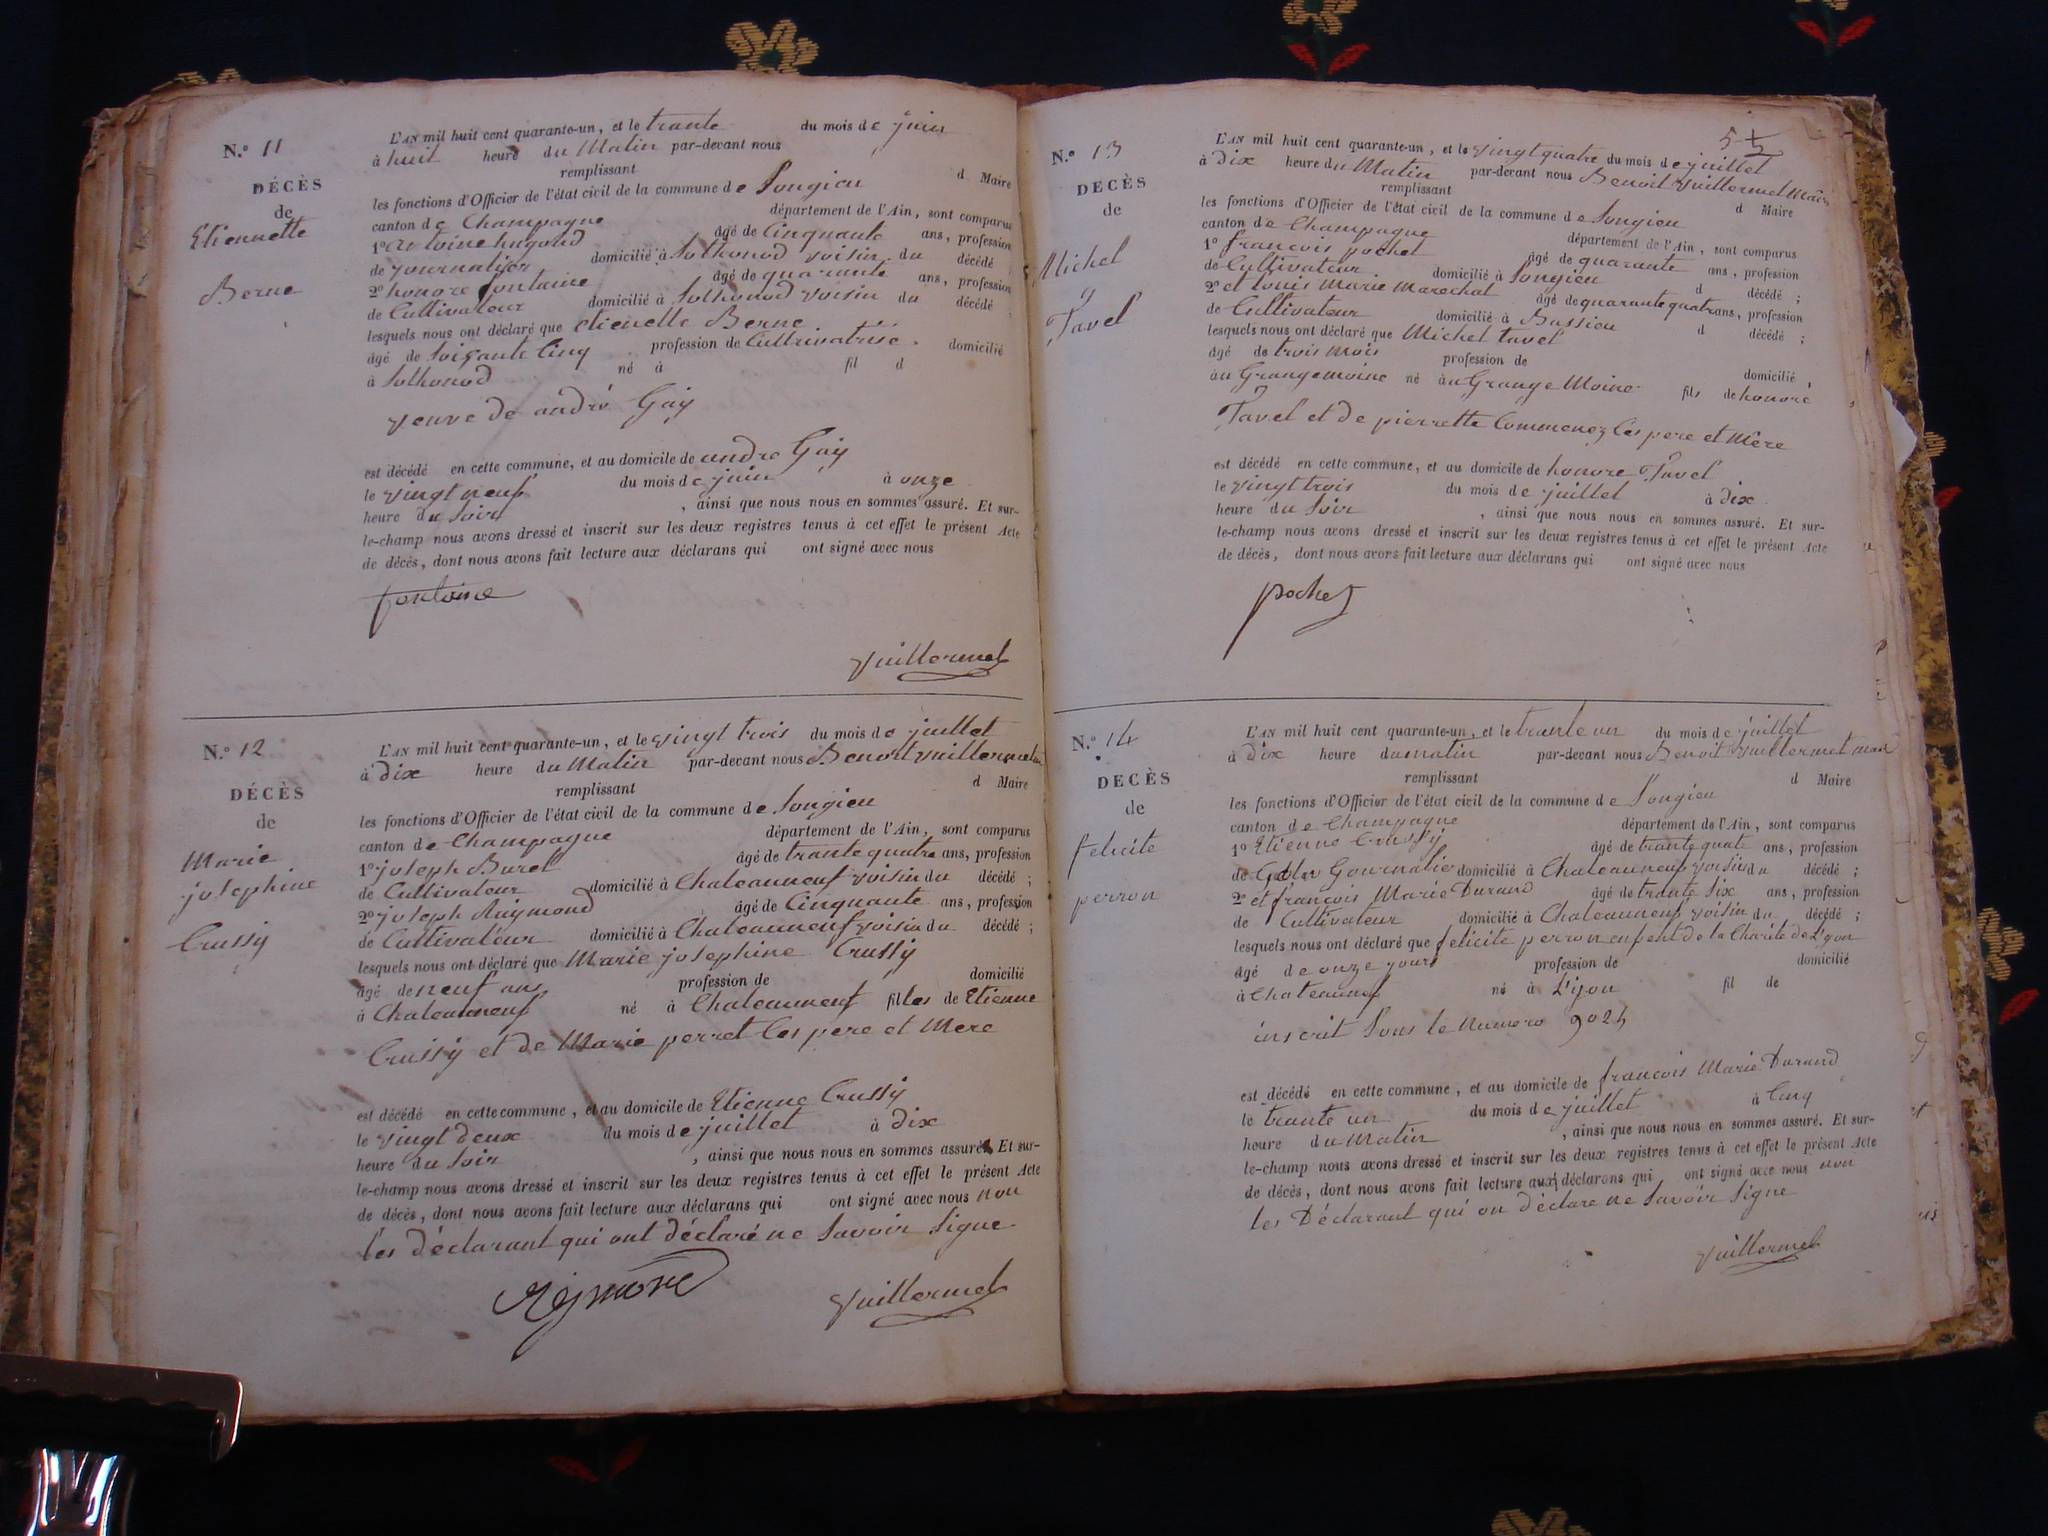 N.º 11
DÉCÈS
de
Etiennette
Berne
L'AN mil huit cent quarante-un, et le trante du mois de juin
à huit heure du Matin par-devant nous
remplissant d Maire
les fonctions d'Officier de l'état civil de la commune de Songieu
canton de Champagne département de l'Ain, sont comparus
1º antoine hugond âgé de Cinquante ans, profession
de journalier domicilié à Sothonod voisin du décédé
2º honore fontaine âgé de quarante ans, profession
de Cultivateur domicilié à Sothonod voisin du décédé
lesquels nous ont déclaré que etienette Berne
âgé de Soisante Cinq profession de Cultivatrise domicilié
à Sothonod né à fil d
veuve de andré Gay
est décédé en cette commune, et au domicile de andre Gay
le vingt neuf du mois de juin à onze
heure du Soir , ainsi que nous nous en sommes assuré. Et sur-
le-champ nous avons dressé et inscrit sur les deux registres tenus à cet effet le présent Acte
de décès, dont nous avons fait lecture aux déclarans qui ont signé avec nous
fontaine
Vuillermet
N.º 12
DÉCÈS
de
Marie
josephine
Crussy
L'AN mil huit cent quarante-un, et le vingt trois du mois de juillet
à dix heure du Matin par-devant nous Benoit Vuillermet
remplissant d Maire
les fonctions d'Officier de l'état civil de la commune de Songieu
canton de Champagne département de l'Ain, sont comparus
1º joseph Burel âgé de trante quatre ans, profession
de Cultivateur domicilié à Chateauneuf voisin du décédé ;
2º joseph Reymond âgé de Cinquante ans, profession
de Cultivateur domicilié à Chateauneuf voisin du décédé ;
lesquels nous ont déclaré que Marie josephine Crussy
âgé de neuf ans profession de domicilié
à Chateauneuf né à Chateauneuf filles de Etienne
Crussy et de Marie perret Ces pere et Mere
est décédé en cette commune, et au domicile de Etienne Crussy
le vingt deux du mois de juillet à dix
heure du Soir , ainsi que nous nous en sommes assuré. Et sur-
le-champ nous avons dressé et inscrit sur les deux registres tenus à cet effet le présent Acte
de décès, dont nous avons fait lecture aux déclarans qui ont signé avec nous non
les déclarant qui ont déclaré ne Savoir Signe
Reymond
Vuillermet
5
N.º 13
DECÈS
de
Michel
Tavel
L'AN mil huit cent quarante-un, et le vingt quatre du mois de juillet
à dix heure du Matin par-devant nous Benoit Vuillermet Maire
remplissant d Maire
les fonctions d'Officier de l'état civil de la commune de Songieu
canton de Champagne département de l'Ain, sont comparus
1º francois pochet âgé de quarante ans, profession
de Cultivateur domicilié à Songieu d décédé ;
2º et louis Marie Marechal âgé de quarante quatr ans, profession
de Cultivateur domicilié à Bassieu d décédé ;
lesquels nous ont déclaré que Michel tavel
âgé de trois mois profession de domicilié,
au Grangemoine né au Grange Moine fils de honore
Tavel et de pierrette Commenez Ces pere et Mère
est décédé en cette commune, et au domicile de honore Tavel
le vingt trois du mois de juillet à dix
heure du Soir , ainsi que nous nous en sommes assuré. Et sur-
le-champ nous avons dressé et inscrit sur les deux registres tenus à cet effet le présent Acte
de décès, dont nous avons fait lecture aux déclarans qui ont signé avec nous
pochet
N.º 14
DECÈS
de
felicite
perron
L'AN mil huit cent quarante-un, et le trante un du mois de juillet
à dix heure du matin par-devant nous Benoit Vuillermet
remplissant d Maire
les fonctions d'Officier de l'état civil de la commune de Songieu
canton de Champagne département de l'Ain, sont comparus
1º Etienne Crussy âgé de trante quatr ans, profession
de Gournalier domicilié à Chateauneuf voisin du décédé ;
2º et francois Marie Durand âgé de trante Six ans, profession
de Cultivateur domicilié à Chateauneuf voisin du décédé ;
lesquels nous ont déclaré que felicite perron enfent de la Charité de L'yon
âgé de onze jours profession de domicilié
à Chateauneuf né à L'yon fil de
inscrit Sous le Numero 9025
est décédé en cette commune, et au domicile de francois Marie Durand
le trante un du mois de juillet à Cinq
heure du Matin , ainsi que nous nous en sommes assuré. Et sur-
le-champ nous avons dressé et inscrit sur les deux registres tenus à cet effet le présent Acte
de décès, dont nous avons fait lecture aux déclarans qui ont signé avec nous non
les Déclarant qui on déclare ne Savoir Signe
Vuillermet